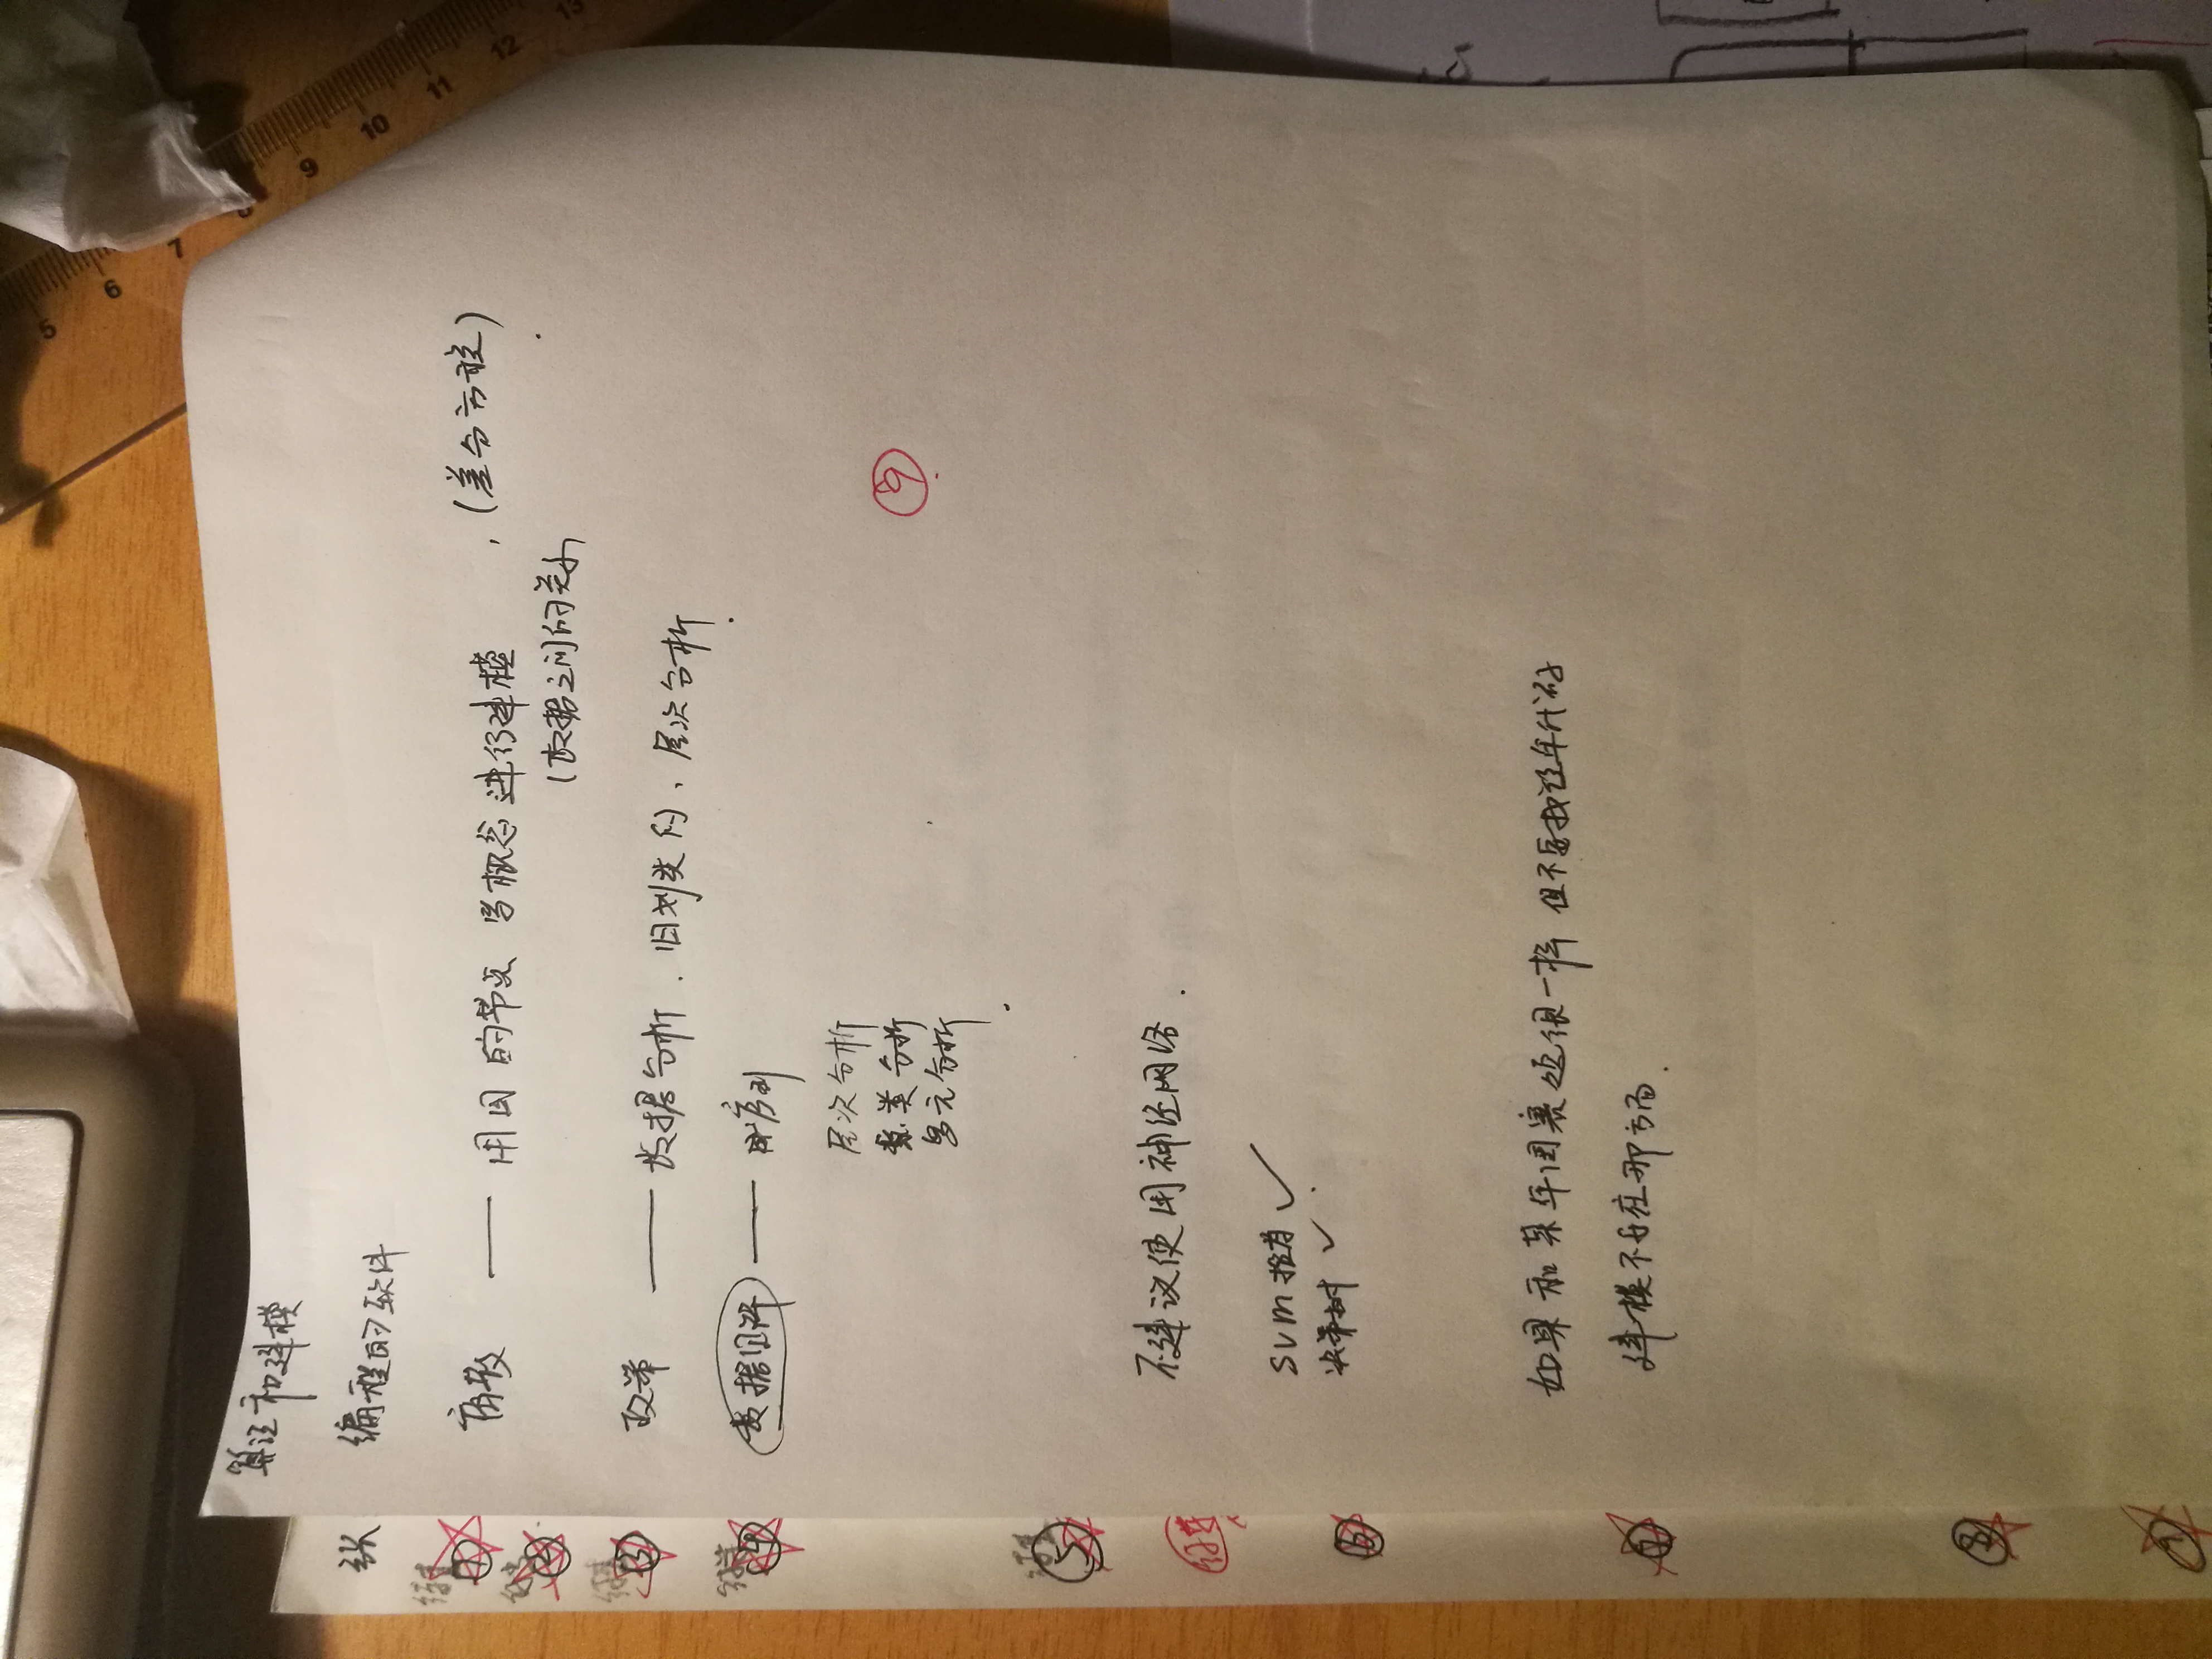 算法和建模
编程的软件
离散 —— 用图的节点与概念进行建模,(差分方程)
(数据之间的关系
政策 —— 数据分析. 旧划类的、层次分析
数据 —— 时序列
层次分析
聚类分析
多元分析
⑨
不建议使用神经网络.
SVM推荐 ✓
决策树 ✓
如果和某年国赛题很一样 但不要找这年代码
建模不在那方面.
张
①
②
③
④
⑤
⑥
⑦
⑧
5
6
7
8
9
10
11
12
13